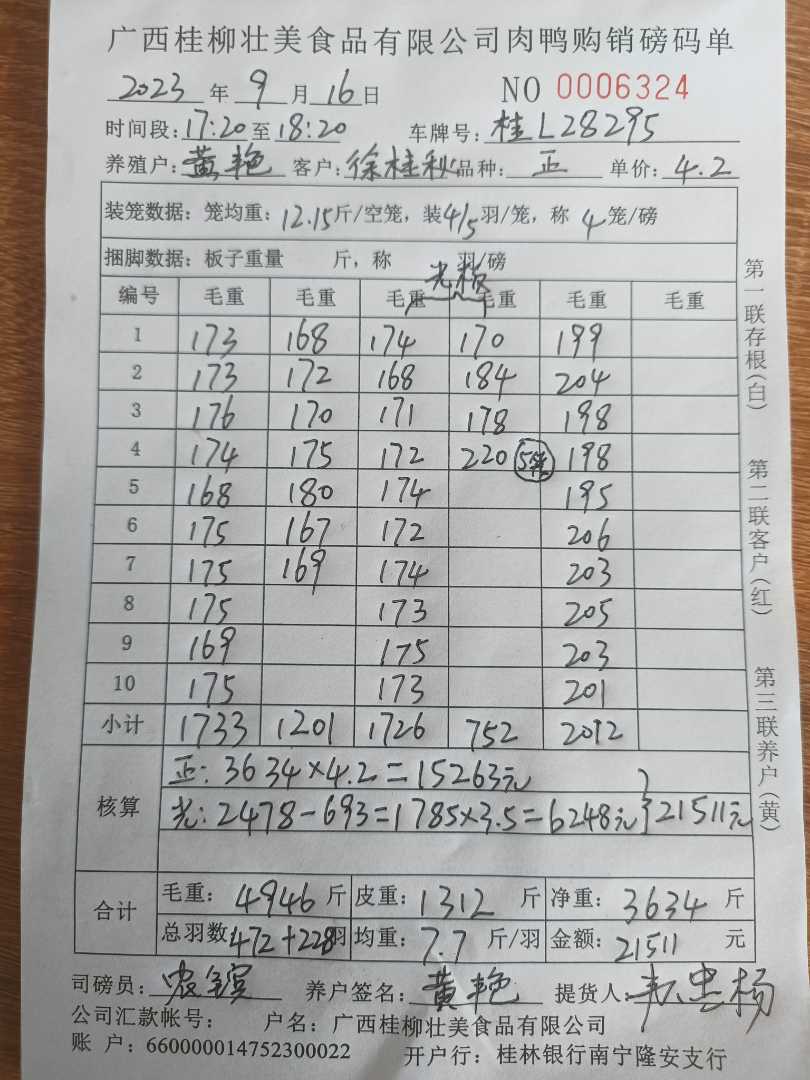 广西桂柳壮美食品有限公司肉鸭购销磅码单
2023 年 9 月 16 日 NO 0006324
时间段: 17:20 至 18:20 车牌号: 桂L28295
养殖户: 黄艳 客户: 徐桂秋 品种: 正 单价: 4.2
装笼数据: 笼均重: 12.15 斤/空笼, 装 4/5 羽/笼, 称 4 笼/磅
捆脚数据: 板子重量 斤, 称 羽/磅
光板
编号 毛重 毛重 毛重 毛重 毛重 毛重
1 173 168 174 170 199
2 173 172 168 184 204
3 176 170 171 178 198
4 174 175 172 220 5笼 198
5 168 180 174 195
6 175 167 172 206
7 175 169 174 203
8 175 173 205
9 169 175 203
10 175 173 201
小计 1733 1201 1726 752 2012
核算
正: 3634×4.2=15263元
光: 2478-693=1785×3.5=6248元 } 21511元
合计
毛重: 4946 斤 皮重: 1312 斤 净重: 3634 斤
总羽数: 472+228 羽 均重: 7.7 斤/羽 金额: 21511 元
司磅员: 养户签名: 黄艳 提货人:
公司汇款帐号: 户名: 广西桂柳壮美食品有限公司
账 户: 660000014752300022 开户行: 桂林银行南宁隆安支行
第一联存根(白)
第二联客户(红)
第三联养户(黄)